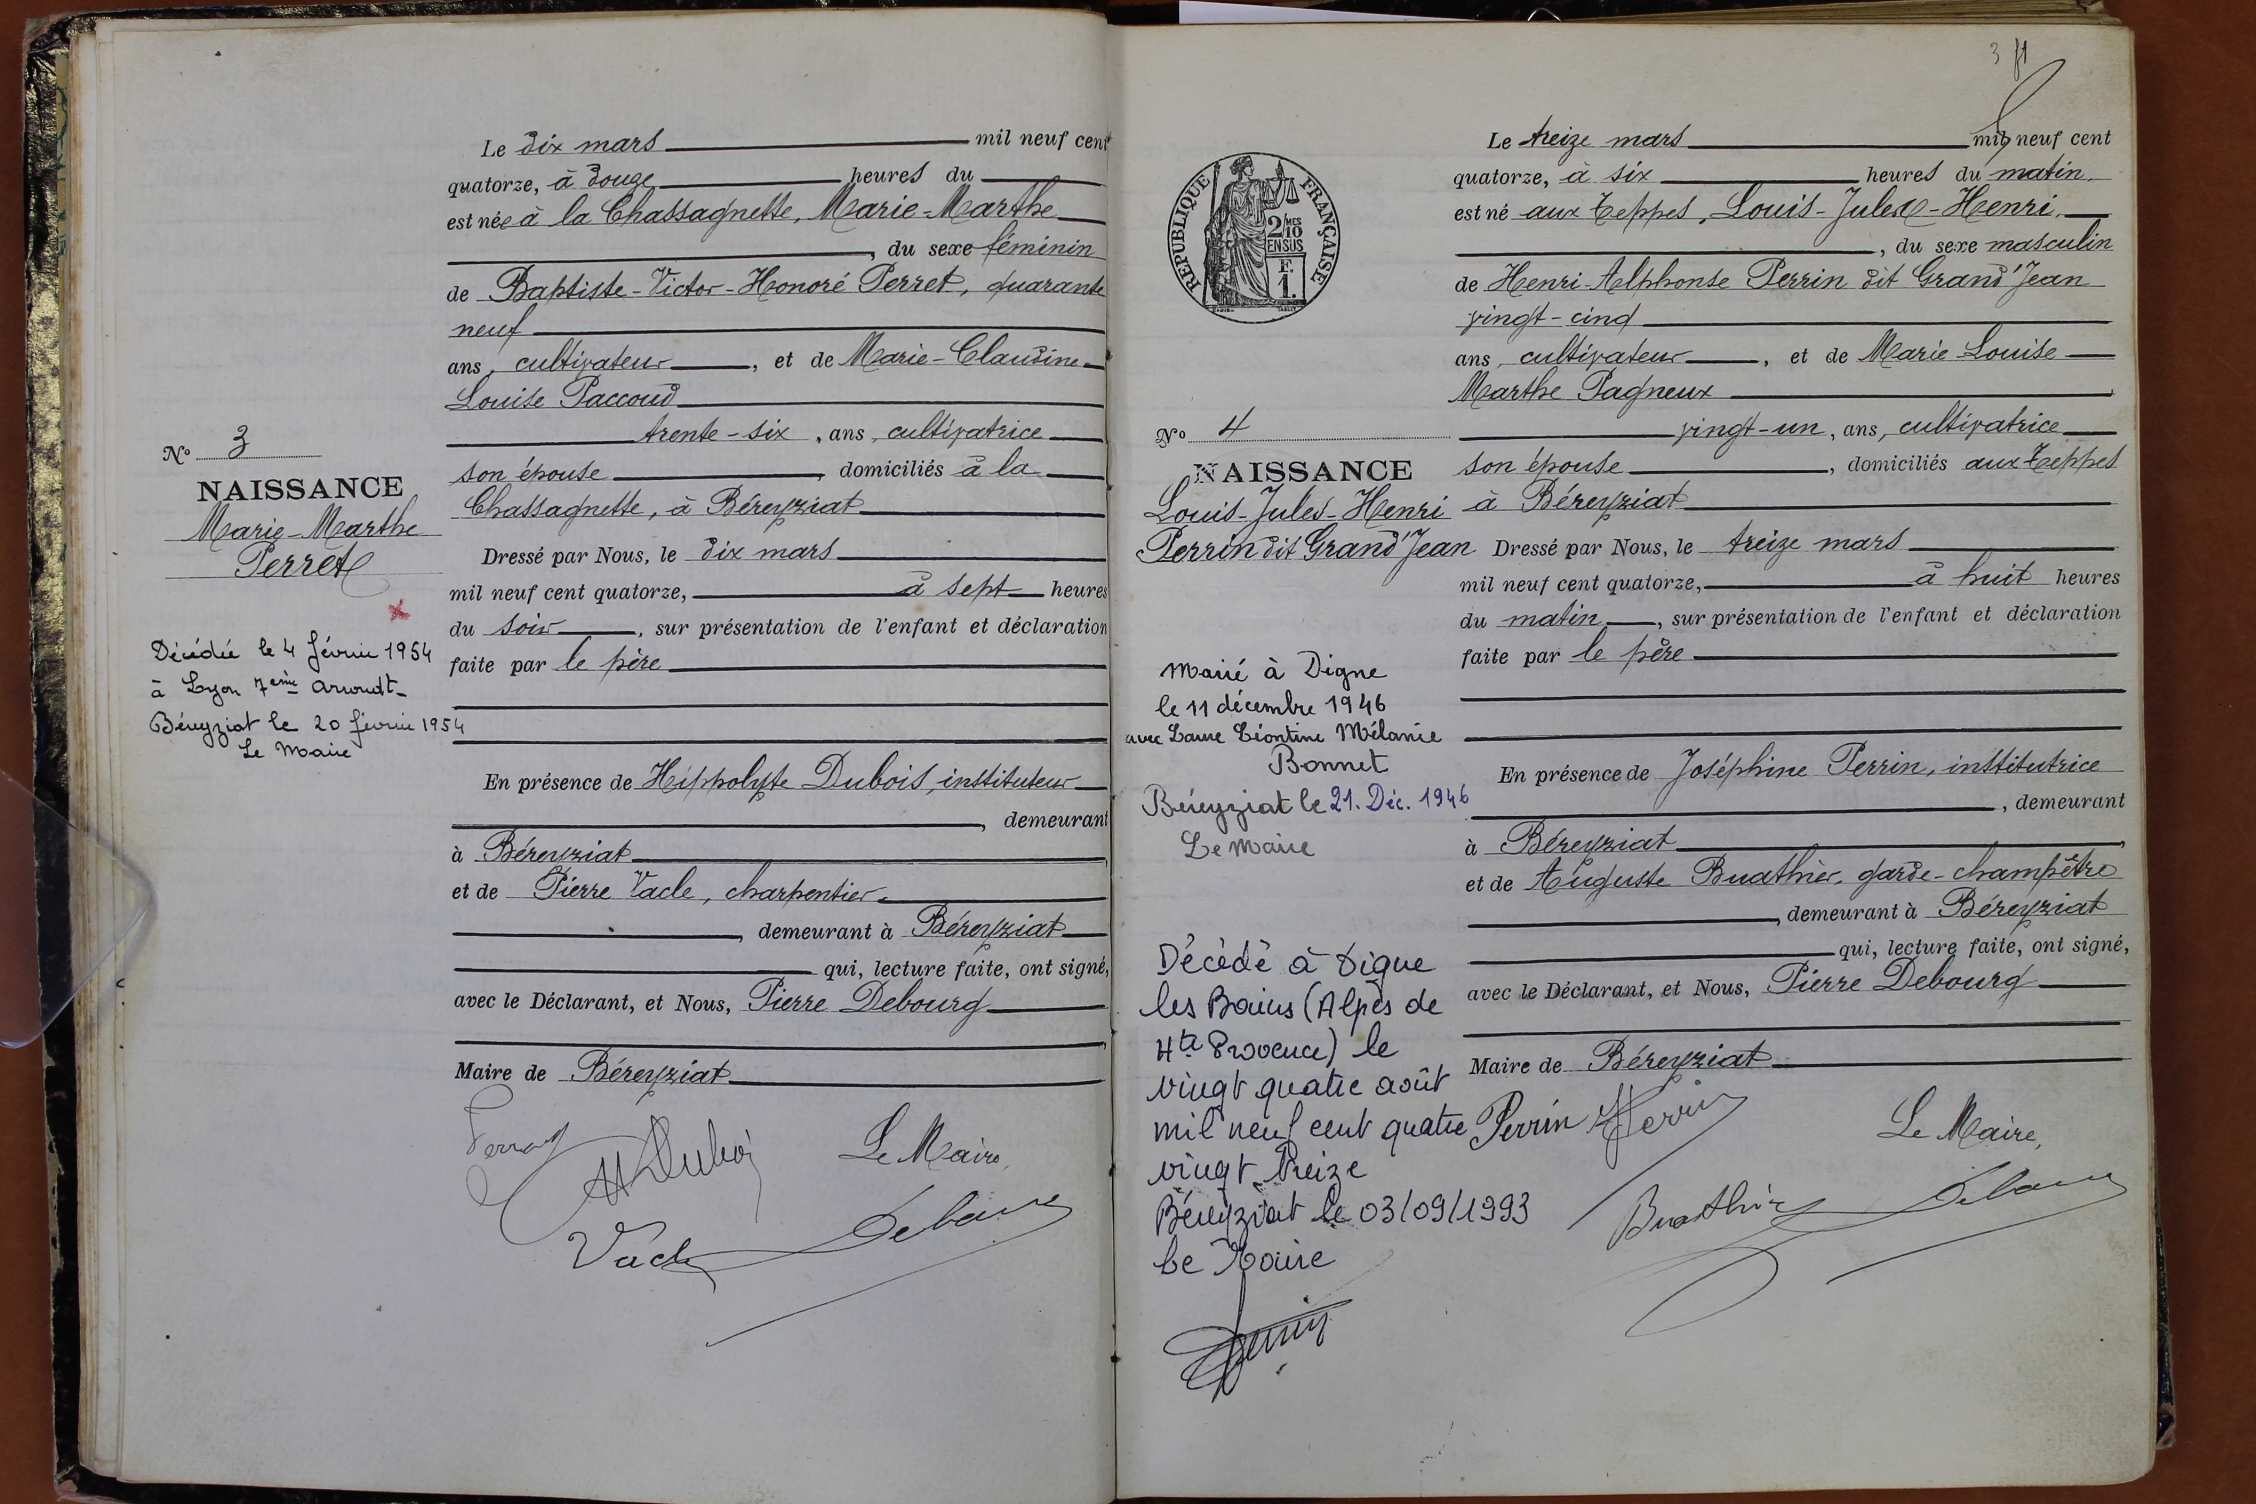 Le dix mars mil neuf cent
quatorze, à douze heures du
est née à la Chassagnette, Marie-Marthe
, du sexe féminin
de Baptiste-Victor-Honoré Perret, quarante
neuf
ans, cultivateur, et de Marie-Claudine
Louise Paccoud
trente-six, ans, cultivatrice
son épouse, domiciliés à la
Chassagnette, à Béreyziat
Dressé par Nous, le dix mars
mil neuf cent quatorze, à sept heures
du soir, sur présentation de l'enfant et déclaration
faite par le père
En présence de Hippolyte Dubois, instituteur
, demeurant
à Béreyziat
et de Pierre Vacle, charpentier
, demeurant à Béreyziat
qui, lecture faite, ont signé,
avec le Déclarant, et Nous, Pierre Debourg
Maire de Béreyziat
Perret
HDubois
Le Maire,
Vacle
Debourg
No 3
NAISSANCE
Marie-Marthe
Perret
Décédée le 4 février 1954
à Lyon 7ème arrondt-
Béreyziat le 20 février 1954
Le Maire
3 f1
RÉPUBLIQUE FRANÇAISE
2/10 MES
EN SUS
F.
1.
Le treize mars mil neuf cent
quatorze, à six heures du matin
est né aux Teppes, Louis-Jules-Henri
, du sexe masculin
de Henri-Alphonse Perrin dit Grand'Jean
vingt-cinq
ans, cultivateur, et de Marie-Louise
Marthe Pagneux
vingt-un, ans, cultivatrice
son épouse, domiciliés aux Teppes
à Béreyziat
Dressé par Nous, le treize mars
mil neuf cent quatorze, à huit heures
du matin, sur présentation de l'enfant et déclaration
faite par le père
En présence de Joséphine Perrin, institutrice
, demeurant
à Béreyziat
et de Auguste Buathier, garde-champêtre
, demeurant à Béreyziat
qui, lecture faite, ont signé,
avec le Déclarant, et Nous, Pierre Debourg
Maire de Béreyziat
Perrin
Perrin
Le Maire,
Buathier
Debourg
No 4
NAISSANCE
Louis-Jules-Henri
Perrin dit Grand'Jean
Marié à Digne
le 11 décembre 1946
avec Laure Léontine Mélanie
Bonnet
Béreyziat le 21. Déc. 1946
Le Maire
Décédé à Digne
les Bains (Alpes de
Hte Provence) le
vingt quatre août
mil neuf cent quatre
vingt treize
Béreyziat le 03/09/1993
Le Maire